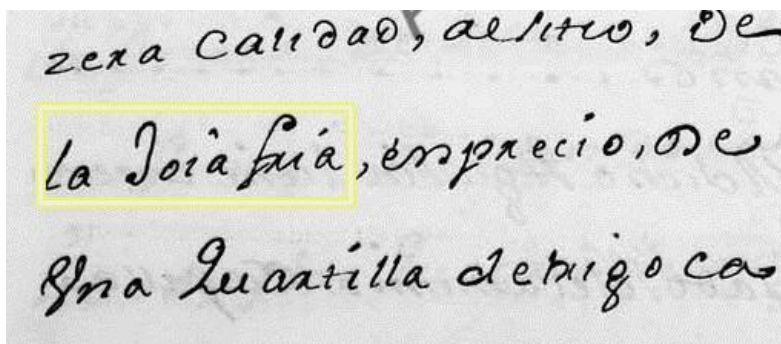 zera calidad, al sitio, De
la Joia fria, en precio, De
Vna Quartilla de trigo ca